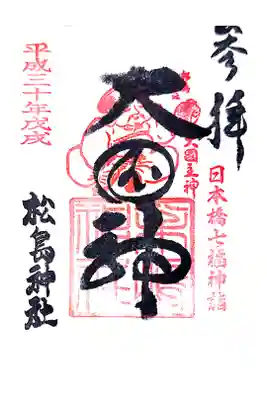 奉拝
日本橋七福神詣
大國主神
大国神
平成三十年戊戌
松島神社